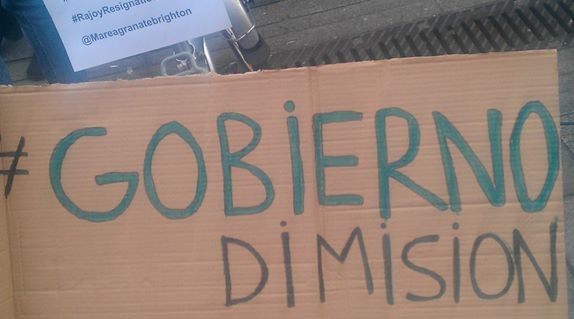 #RajoyResignatio
@Mareagranatebrighton
#GOBiERNO
DiMiSiON